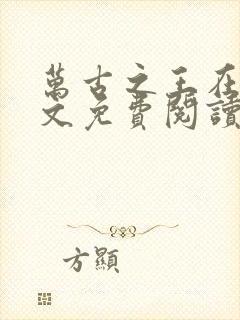 萬古之王在
文免費閱讀
方顯